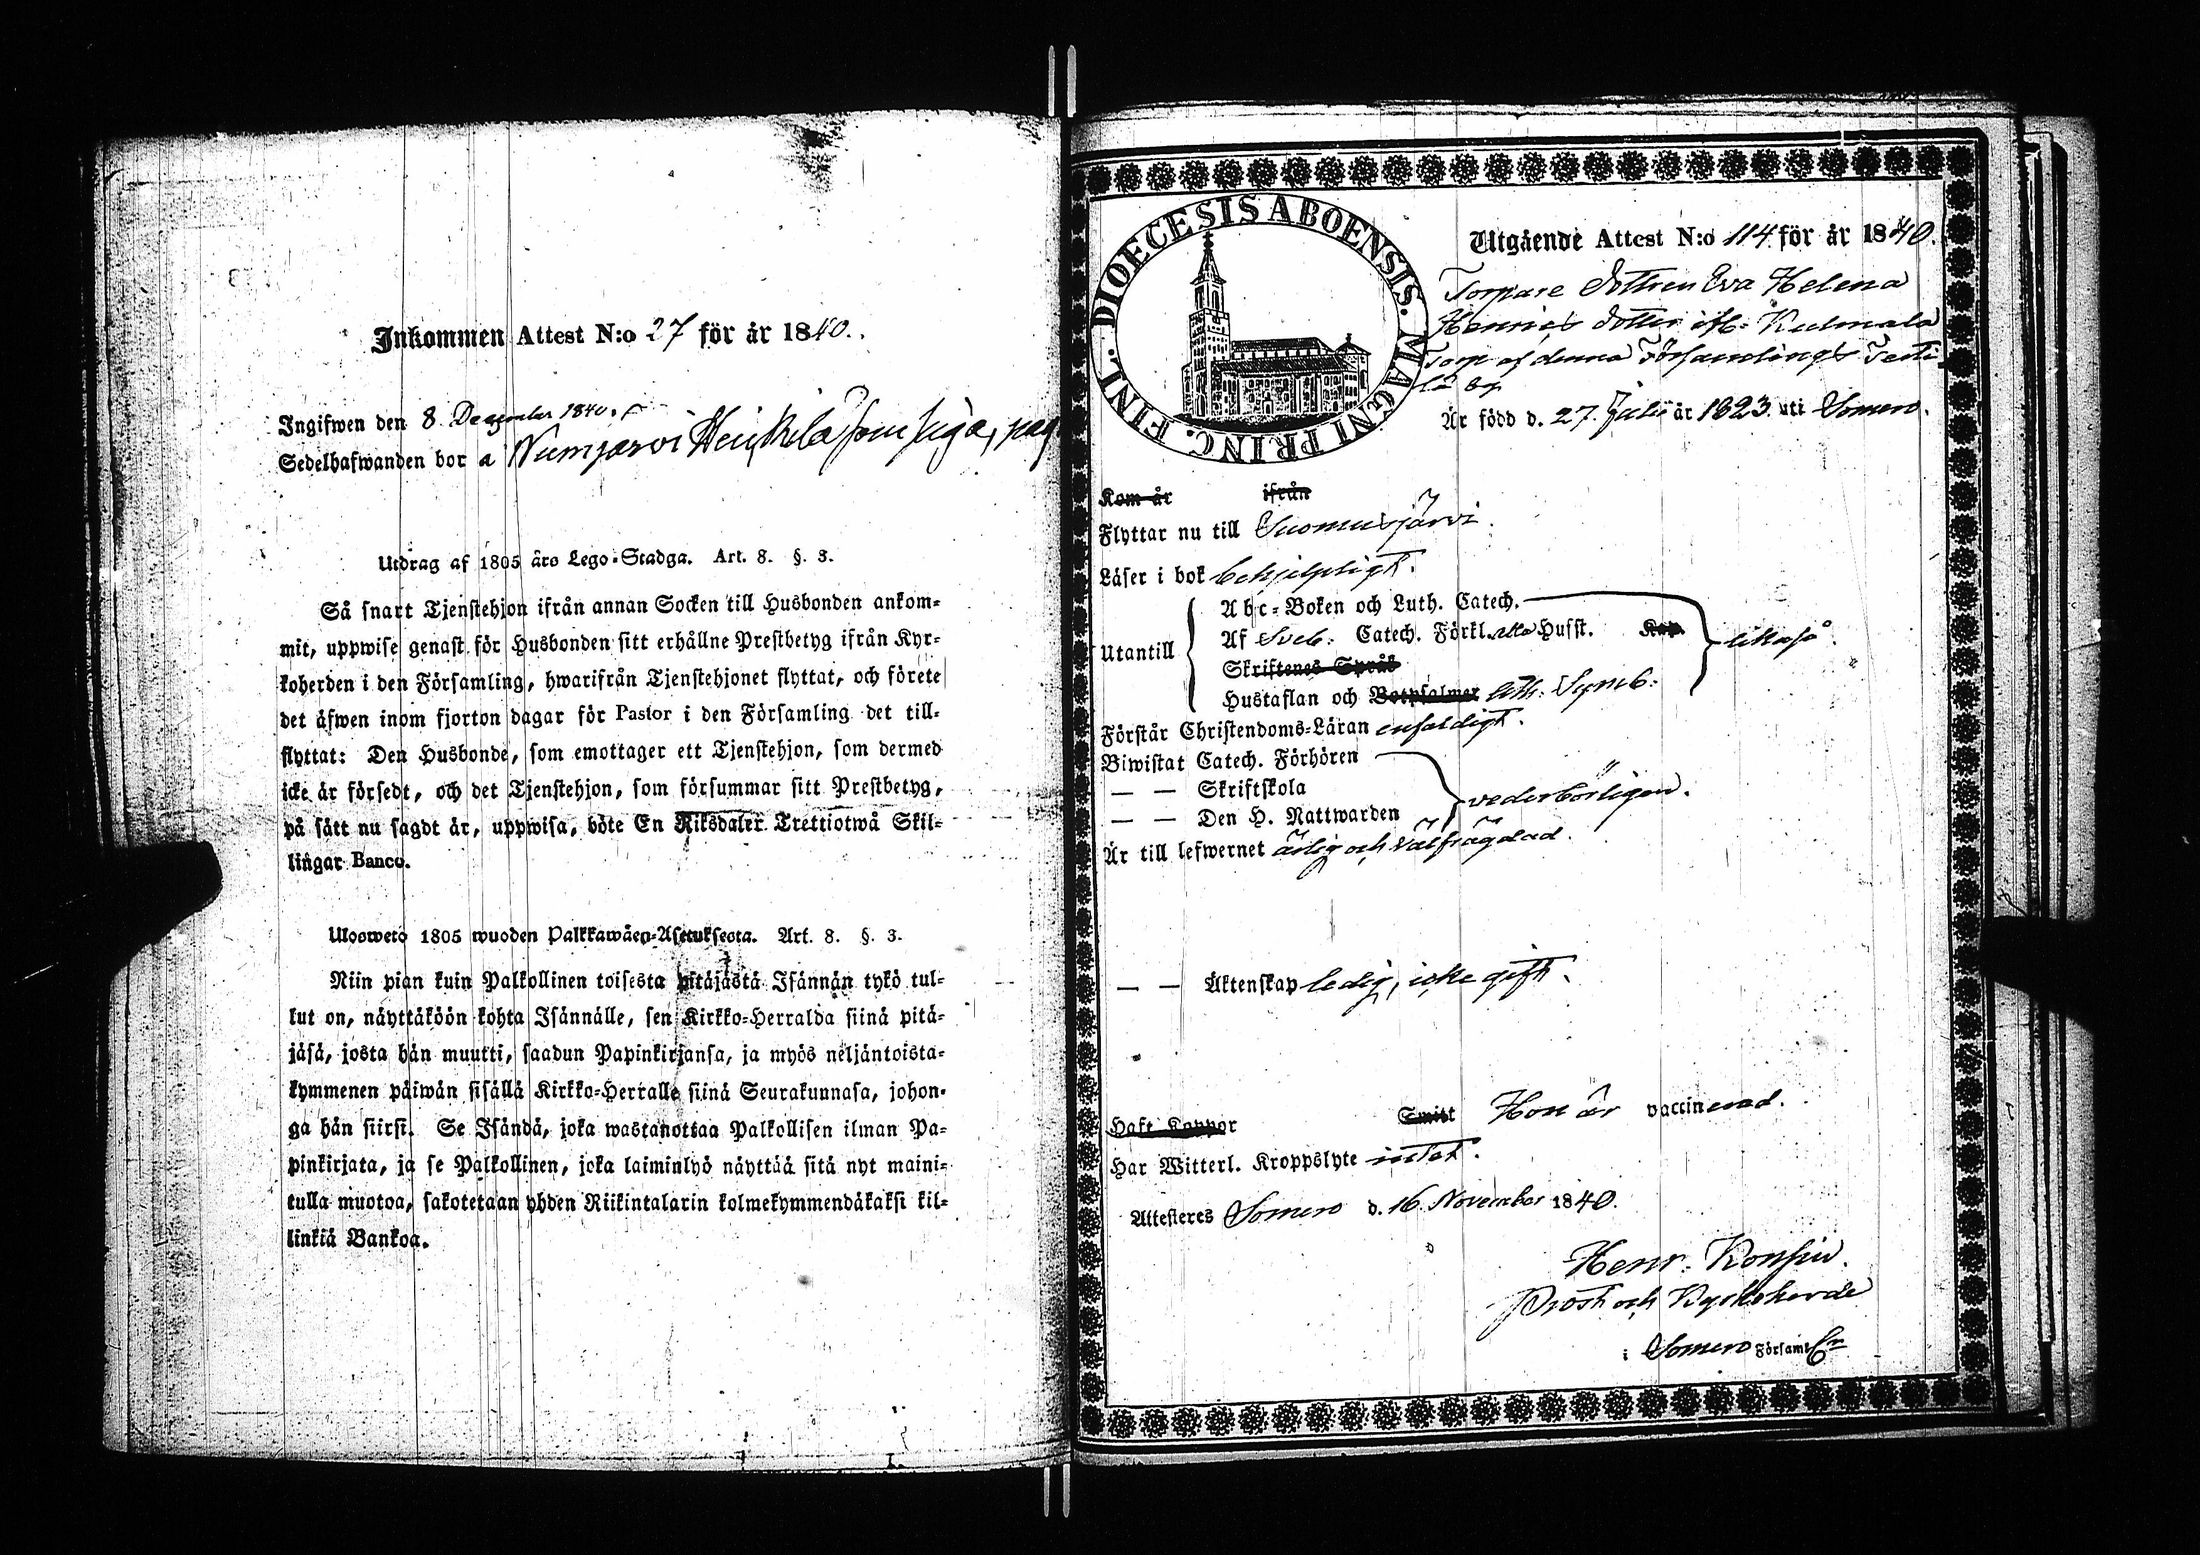 Inkommen Attest N:o 27 för år 1840.
Ingifwen den 8 December 1840.
Sedelhafwanden bor a Numjarvi Heikkilä som piga, pag
Utdrag af 1805 års Lego-Stadga. Art. 8. §. 3.
Så snart Tjenstehjon ifrån annan Socken till Husbonden ankom-
mit, uppwise genast för Husbonden sitt erhållne Prestbetyg ifrån Kyr-
koherden i den Församling, hwarifrån Tjenstehjonet flyttat, och förete
det äfwen inom fjorton dagar för Pastor i den Församling det till-
flyttat: Den Husbonde, som emottager ett Tjenstehjon, som dermed
icke är försedt, och det Tjenstehjon, som försummar sitt Prestbetyg,
på sätt nu sagdt är, uppwisa, böte En Riksdaler Trettiotwå Skil-
lingar Banco.
Ulosweto 1805 wuoden Palkkawäen-Asetuksesta. Art. 8. §. 3.
Niin pian kuin Palkollinen toisesta pitäjästä Isännän tykö tul-
lut on, näyttäköön kohta Isännälle, sen Kirkko-Herralda siinä pitä-
jäsä, josta hän muutti, saadun Papinkirjansa, ja myös neljäntoista-
kymmenen päiwän sisällä Kirkko-Herralle siinä Seurakunnasa, johon-
ga hän siirsi. Se Isändä, joka wastanottaa Palkollisen ilman Pa-
pinkirjata, ja se Palkollinen, joka laiminlyö näyttää sitä nyt maini-
tulla muotoa, sakotetaan yhden Riikintalarin kolmekymmendäkaksi kil-
linkiä Bankoa.
DIOECESIS ABOENSIS. MAGNI PRINC. FINL.
Utgående Attest N:o 114 för år 1840.
Torpare Dottren Eva Helena
Henrics dotter ifr: Kulmala
Torp af denna Församlings Terti
lä by
Är född d. 27 Julii år 1823 uti Somero.
Kom år ifrån
Flyttar nu till Suomusjärvi.
Läser i bok behjelpligt.
Utantill
Abc-Boken och Luth. Catech.
Af Sveb: Catech. Förkl. utto Husst. Kap.
Skriftenes Språk
Hustaflan och Botpsalmer Ath: Symb:
likaså.
Förstår Christendoms-Läran enfaldigt.
Biwistat Catech. Förhören
— — Skriftskola
— — Den H. Nattwarden
vederbörligen.
Är till lefwernet ärlig och välfrägdad.
— — Äktenskap ledig, icke gift.
Haft Koppor Smitt Hon är vaccinerad.
Har Witterl. Kroppslyte intet.
Attesteres Somero d. 16 November 1840.
Henr. Konsin.
Prost och Kyrkoherde
i Somero Församl